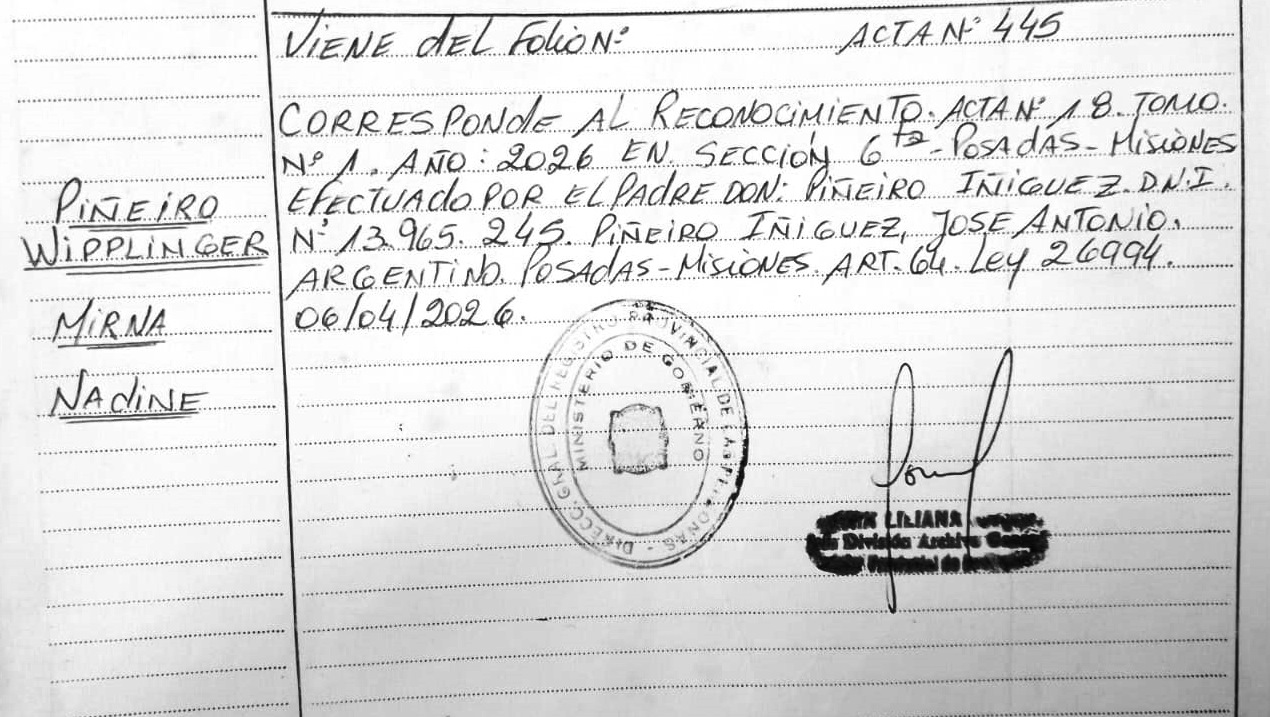 VIENE DEL FOLIO Nº ACTA Nº 445
CORRESPONDE AL RECONOCIMIENTO. ACTA Nº 18. TOMO.
Nº 1. AÑO: 2026 EN. SECCIÓN 6ta - POSADAS - MISIONES
EFECTUADO POR EL PADRE DON: PIÑEIRO IÑIGUEZ. D.N.I.
Nº 13.965.245. PIÑEIRO IÑIGUEZ, JOSE ANTONIO.
ARGENTINO. POSADAS - MISIONES. ART. 64. Ley 26994.
06/04/2026.
PIÑEIRO
WIPPLINGER
MIRNA
NADINE
DIRECC. GRAL. DEL REGISTRO PROVINCIAL DE LAS PERSONAS
MINISTERIO DE GOBIERNO
LILIANA
División Archivo General
Provincial de